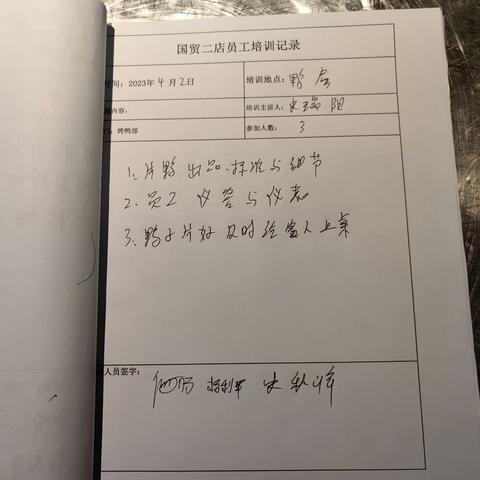 国贸二店员工培训记录
时间：2023年4月2日
培训地点：鸭房
训内容：
培训主讲人：史瑞阳
门：烤鸭部
参加人数：3
1、片鸭出品、标准与细节
2、员工仪容与仪表
3、鸭子片好及时给客人上桌
人员签字：